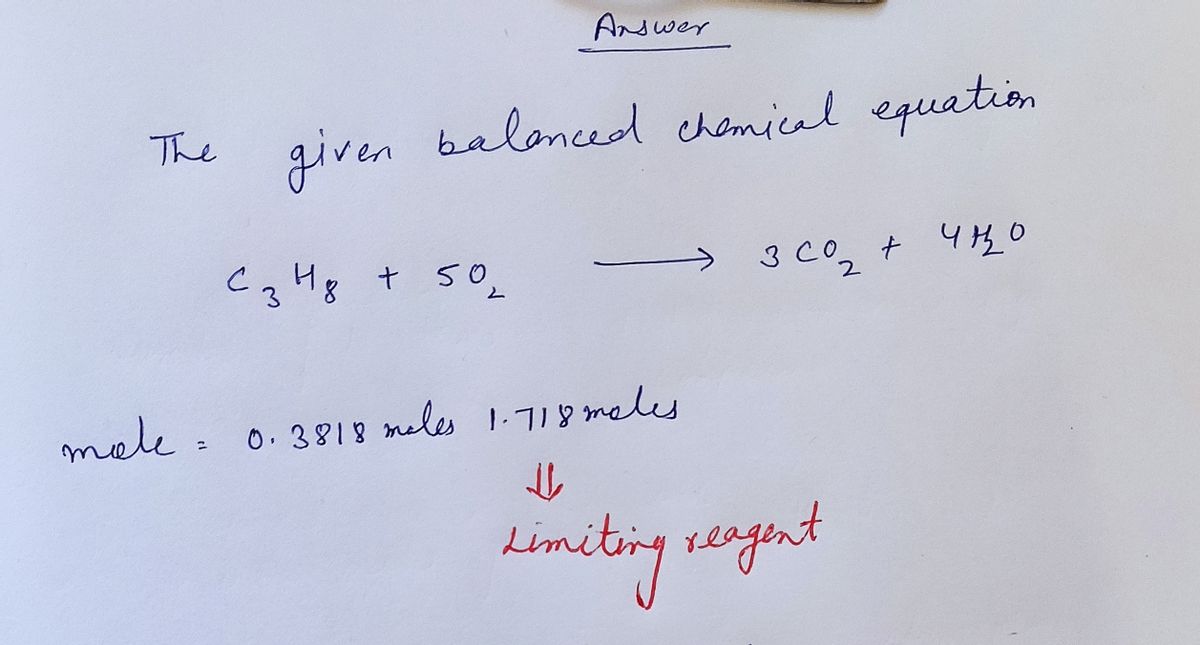 Answer
The given balanced chemical equation
C₃H₈ + 5O₂ ⟶ 3CO₂ + 4H₂O
mole = 0.3818 moles 1.718 moles
⇓
Limiting reagent